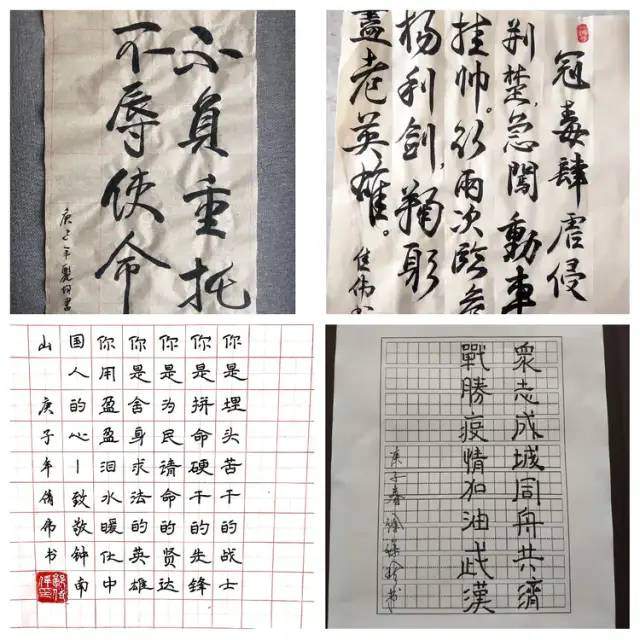 不負重托
不辱使命
庚子年 书
冠毒肆虐侵
荆楚,急闖動車
挂帅。 兩次臨危
杨利剑,鞠躬
盖老英雄。
佳伟书
你是埋头苦干的战士
你是拼命硬干的先锋
你是为民请命的贤达
你是舍身求法的英雄
你用盈盈泪水暖化中
国人的心—致敬钟南
山 庚子年 伟书
衆志成城同舟共濟
戰勝疫情加油武漢
庚子春徐 书